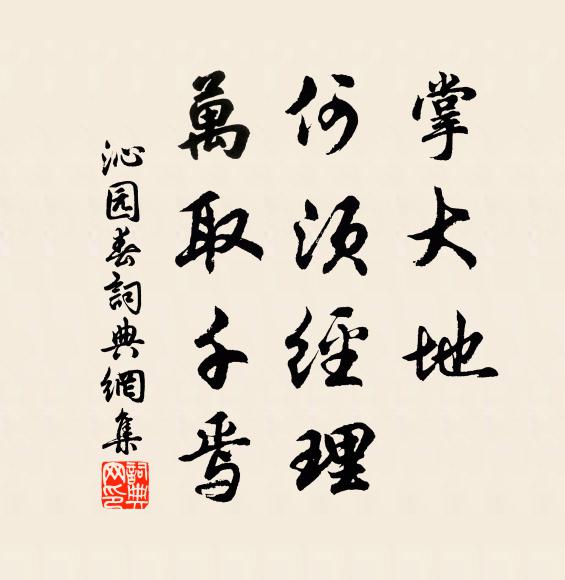 掌大地
何須經理
萬取千焉
沁园春詞典網集
詞典網印